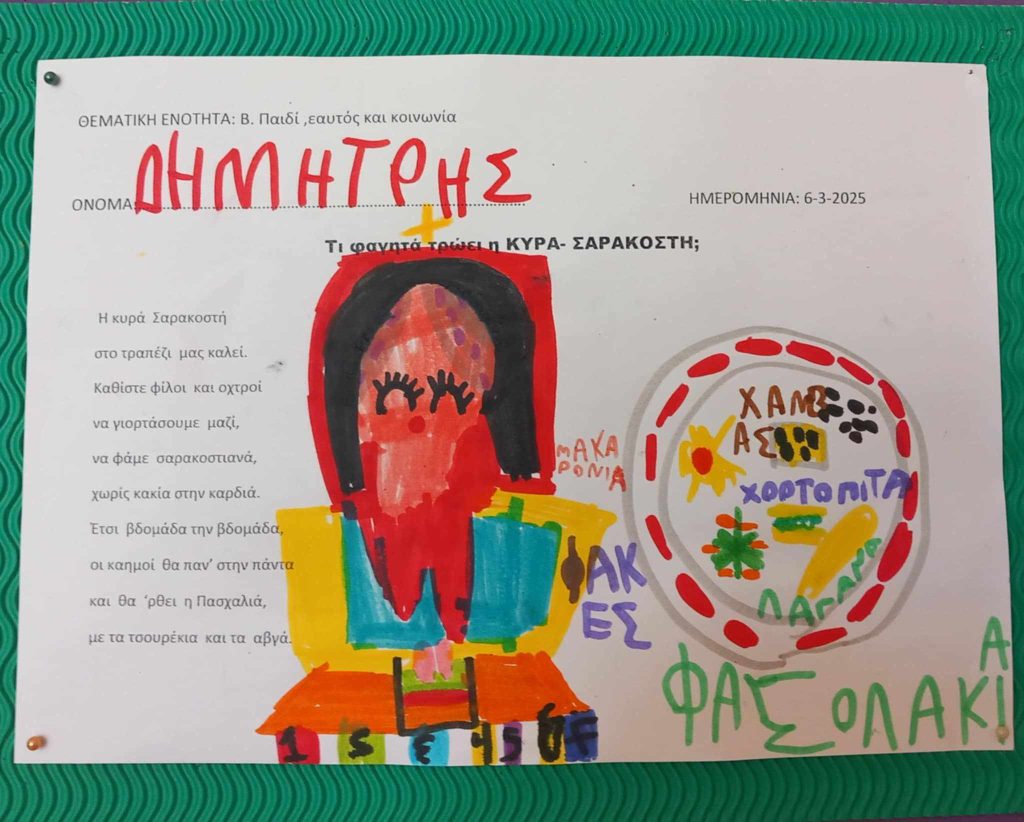 ΘΕΜΑΤΙΚΗ ΕΝΟΤΗΤΑ: Β. Παιδί ,εαυτός και κοινωνία
ΟΝΟΜΑ: ΔΗΜΗΤΡΗΣ
ΗΜΕΡΟΜΗΝΙΑ: 6-3-2025
Τι φαγητά τρώει η ΚΥΡΑ- ΣΑΡΑΚΟΣΤΗ;
Η κυρά Σαρακοστή
στο τραπέζι μας καλεί.
Καθίστε φίλοι και οχτροί
να γιορτάσουμε μαζί,
να φάμε σαρακοστιανά,
χωρίς κακία στην καρδιά.
Έτσι βδομάδα την βδομάδα,
οι καημοί θα παν' στην πάντα
και θα 'ρθει η Πασχαλιά,
με τα τσουρέκια και τα αβγά.
ΜΑΚΑ
ΡΟΝΙΑ
ΧΑΛΒ
ΑΣ
ΧΟΡΤΟΠΙΤΑ
ΛΑΓΑΝΑ
ΦΑΚ
ΕΣ
ΦΑΣΟΛΑΚΙ
Α